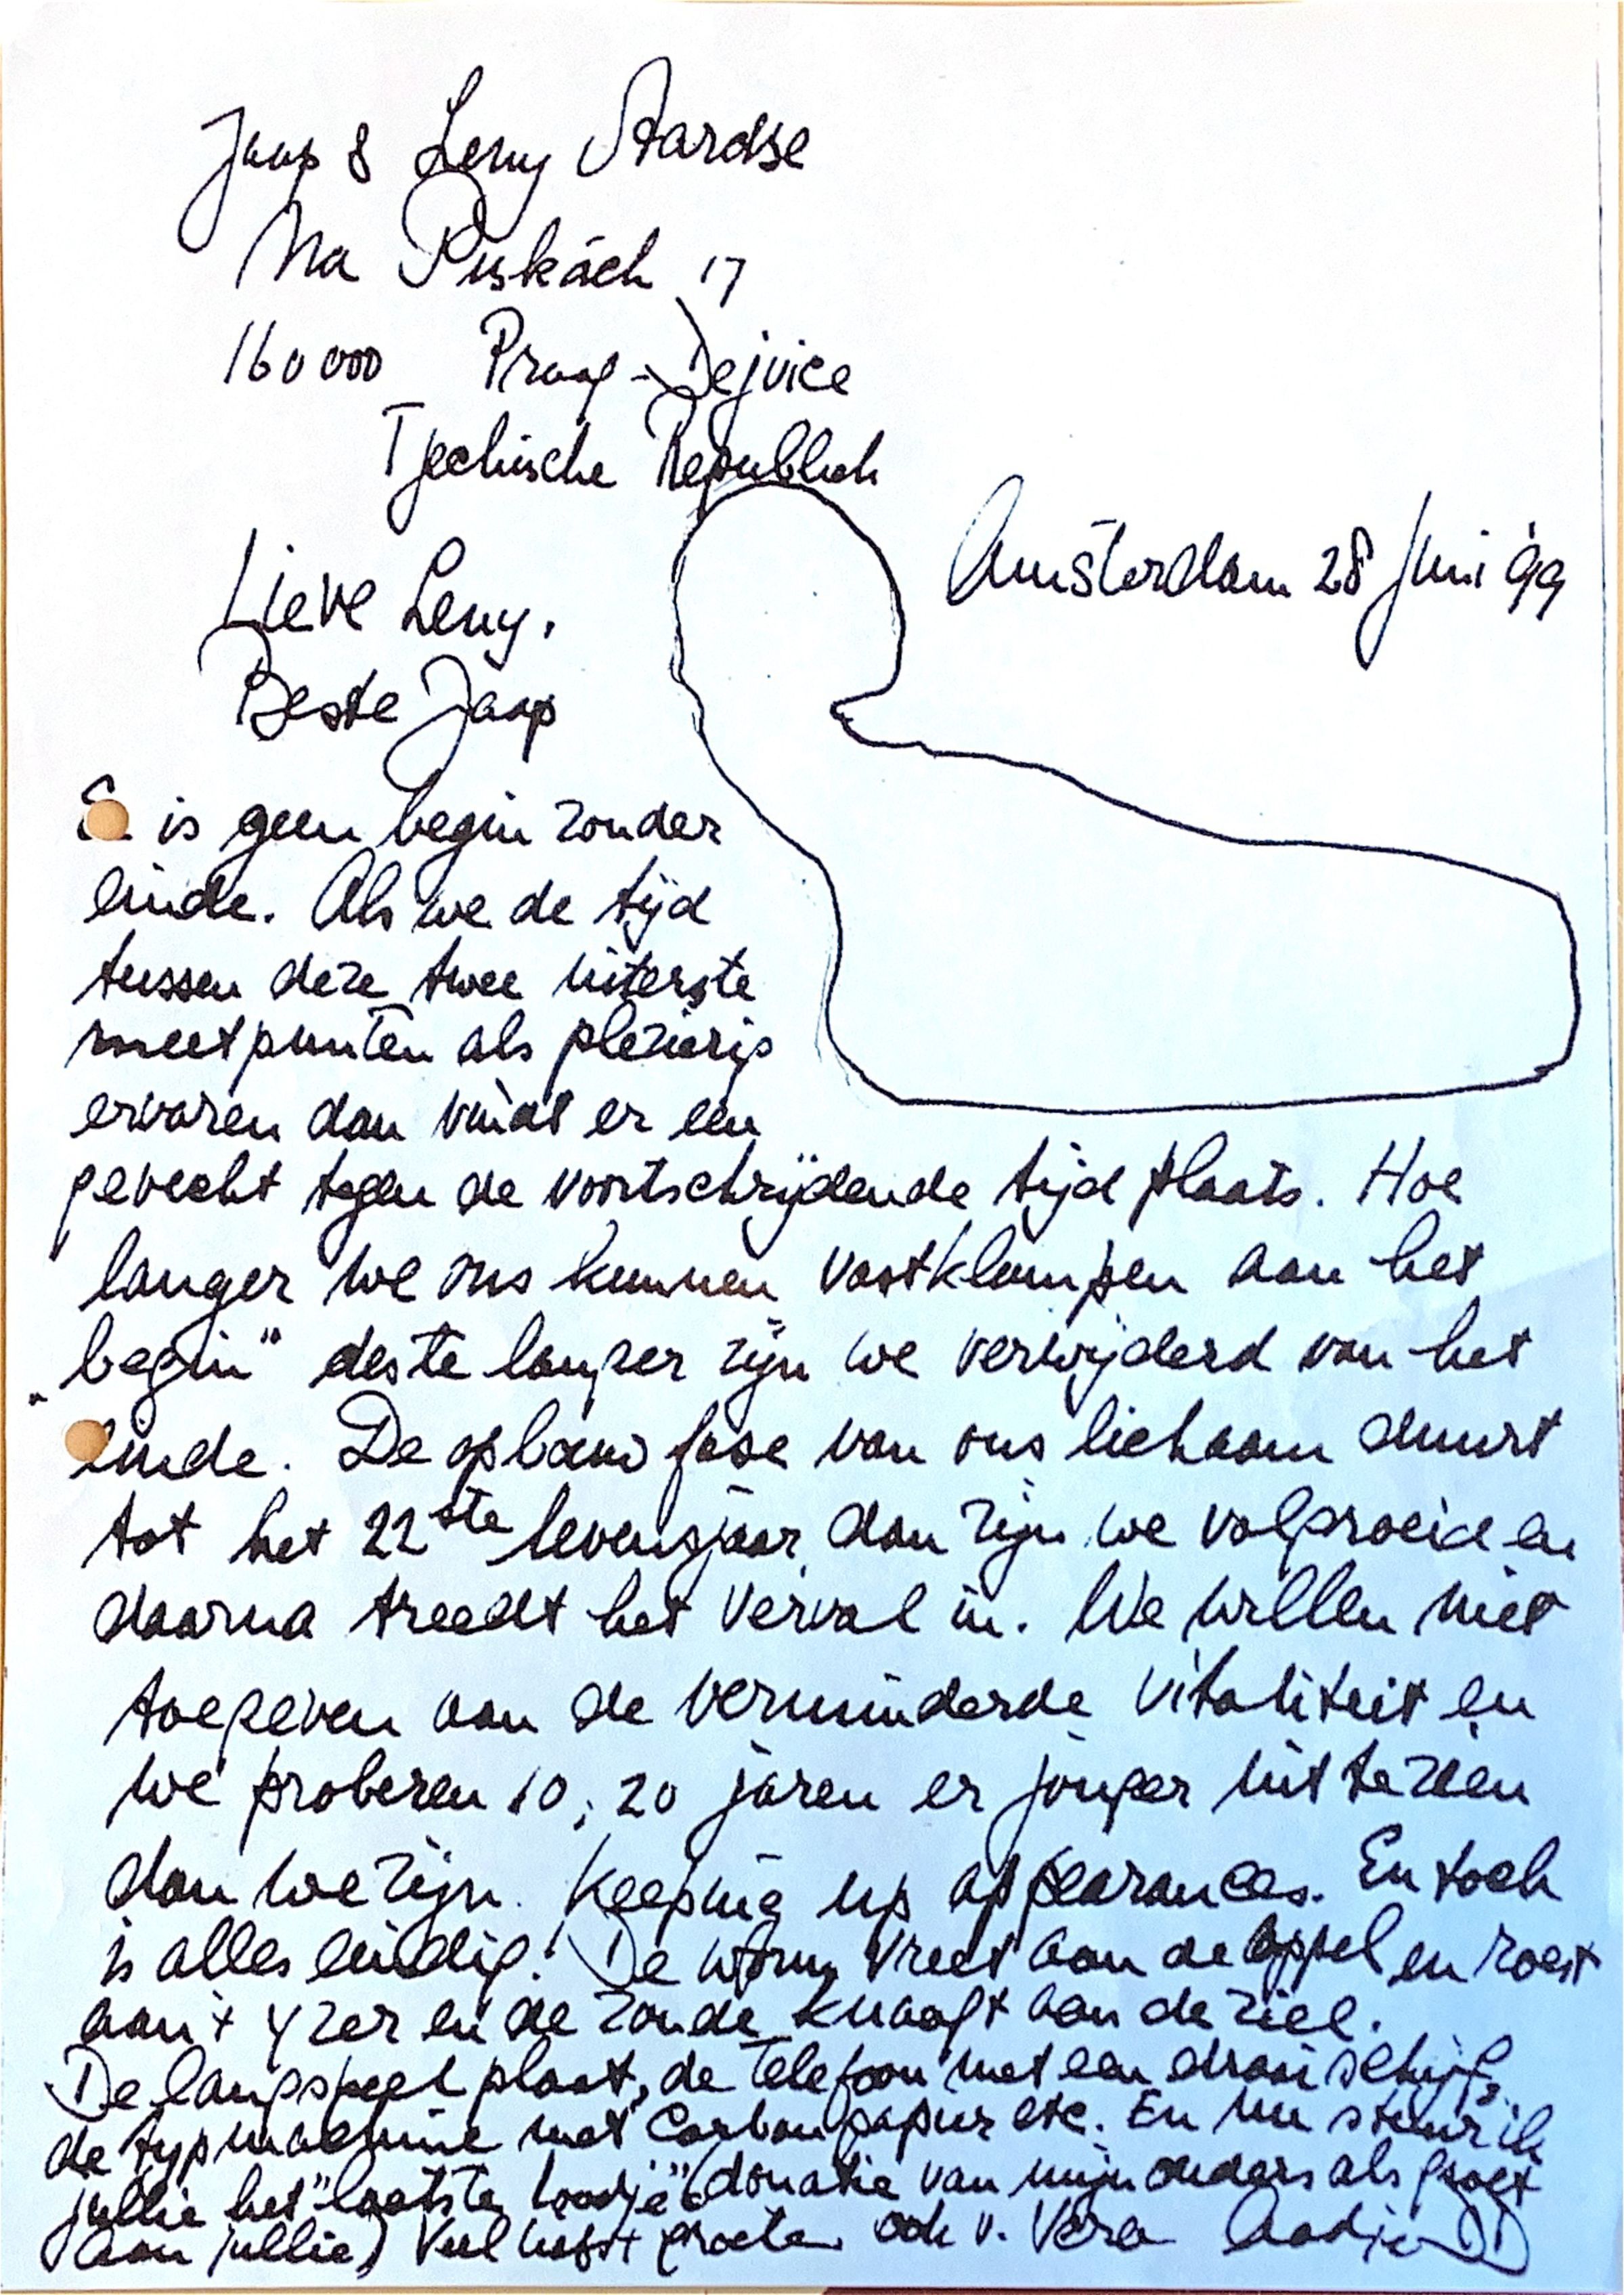 Jaap & Leny Aardse
Na Piskách 17
160000 Praag - Dejvice
Tjechische Republiek
Amsterdam 28 Juni '99
Lieve Leny,
Beste Jaap
is geen begin zonder
einde. Als we de tijd
tussen deze twee uiterste
meetpunten als plezierig
ervaren dan vindt er een
gevecht tegen de voortschrijdende tijd plaats. Hoe
langer we ons kunnen vastklampen aan het
"begin" deste langer zijn we verwijderd van het
einde. De opbouw fase van ons lichaam duurt
tot het 22ste levensjaar dan zijn we volgroeid en
daarna treedt het verval in. We willen niet
toegeven aan de verminderde vitaliteit en
we proberen 10, 20 jaren er jonger uit te zien
dan we zijn. Keeping up appearances. En toch
is alles eindig! De worm vreet aan de appel en roest
aan 't yzer en de zonde knaagt aan de ziel.
De langspeel plaat, de telefoon met een draaischijf,
de typmachine met Carbonpapier etc. En nu stuur ik
jullie het "laatste loodje" (donatie van mijn ouders als groet
aan jullie) Veel liefs + groeten ook v. Vera Aadje